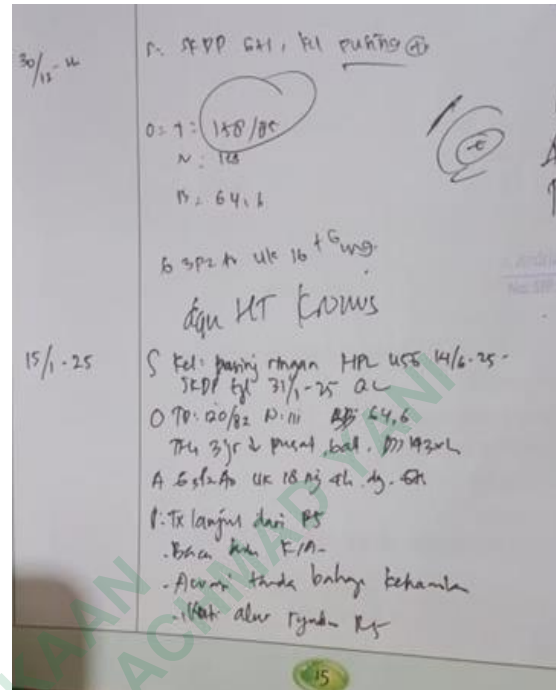 30/12-24
S: SKDP GA1, kel pusing (+)
O: T: 158/85
N: 128
B: 64,6
G3P2A0 uk 16 + 6 mg
dgn HT Kronis
15/1-25
S Kel: pusing ringan HPL USG 14/6-25-
SKDP tgl 31/1-25
O TD: 120/82 N: 111 BB 64,6
TFU 3 jr pusat, ball. DJJ 143x/
A G3P2A0 uk 18 mg 4h dg.
P: Tx lanjut dari RS
- Baca buku KIA-
- tanda bahaya kehamilan
- alur RS
15
KAAN
ACHMAD YANI